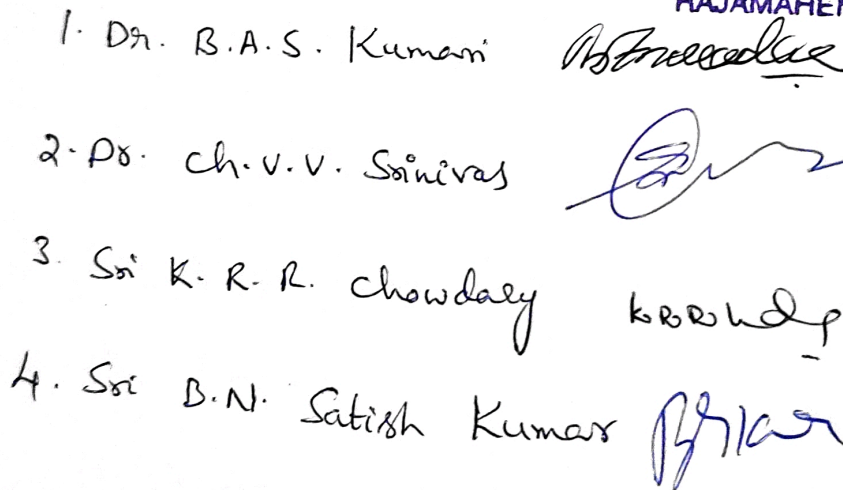 RAJAMAHEN
1. Dr. B.A.S. Kumari
2. Dr. Ch.V.V. Srinivas
3. Sri K.R.R. Chowdary
4. Sri B.N. Satish Kumar